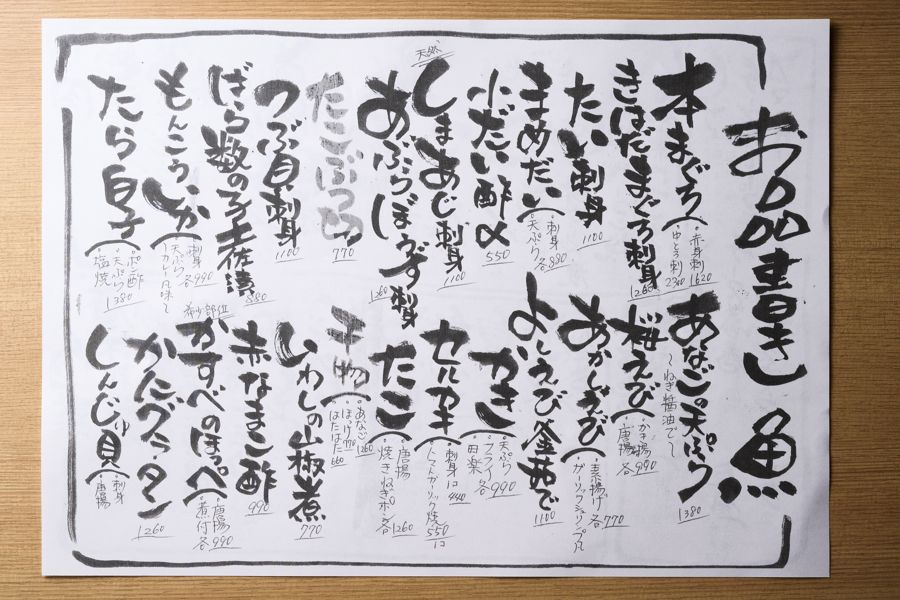 お品書き 魚
本まぐろ
・赤身刺 1620
・中とろ刺 2300
きはだまぐろ刺身 1260
たい刺身 1100
まめだい
・刺身
・天ぷら 各880
小だい酢〆 550
天然
しまあじ刺身 1100
あぶらぼうず刺 1260
たこぶつ切り 770
つぶ貝刺身 1100
ばら数の子土佐漬 880
もんごういか
・刺身
・天ぷら 各990
〜カレー風味〜
たら白子
・ポン酢
・天ぷら
・塩焼 1380
あなごの天ぷら 1380
〜ねぎ醤油で〜
桜えび
・かき揚
・唐揚 各990
あかしまえび
・素揚げ
・ガーリックシュリンプ風 各770
よしえび釜茹で 1100
かき
・天ぷら
・フライ
・田楽 各990
セルカキ
・刺身 1コ 440
・トマトガリック焼 1コ 550
たこ
・唐揚
・焼きねぎポン 各1260
干物
・あなご 1260
・ほっけ 770
・はたはた 660
いわしの山椒煮 770
赤なまこ酢 990
希少部位
かすべのほっぺ
・唐揚
・煮付 各990
かにグラタン 1260
しんじゅ貝
・刺身
・唐揚